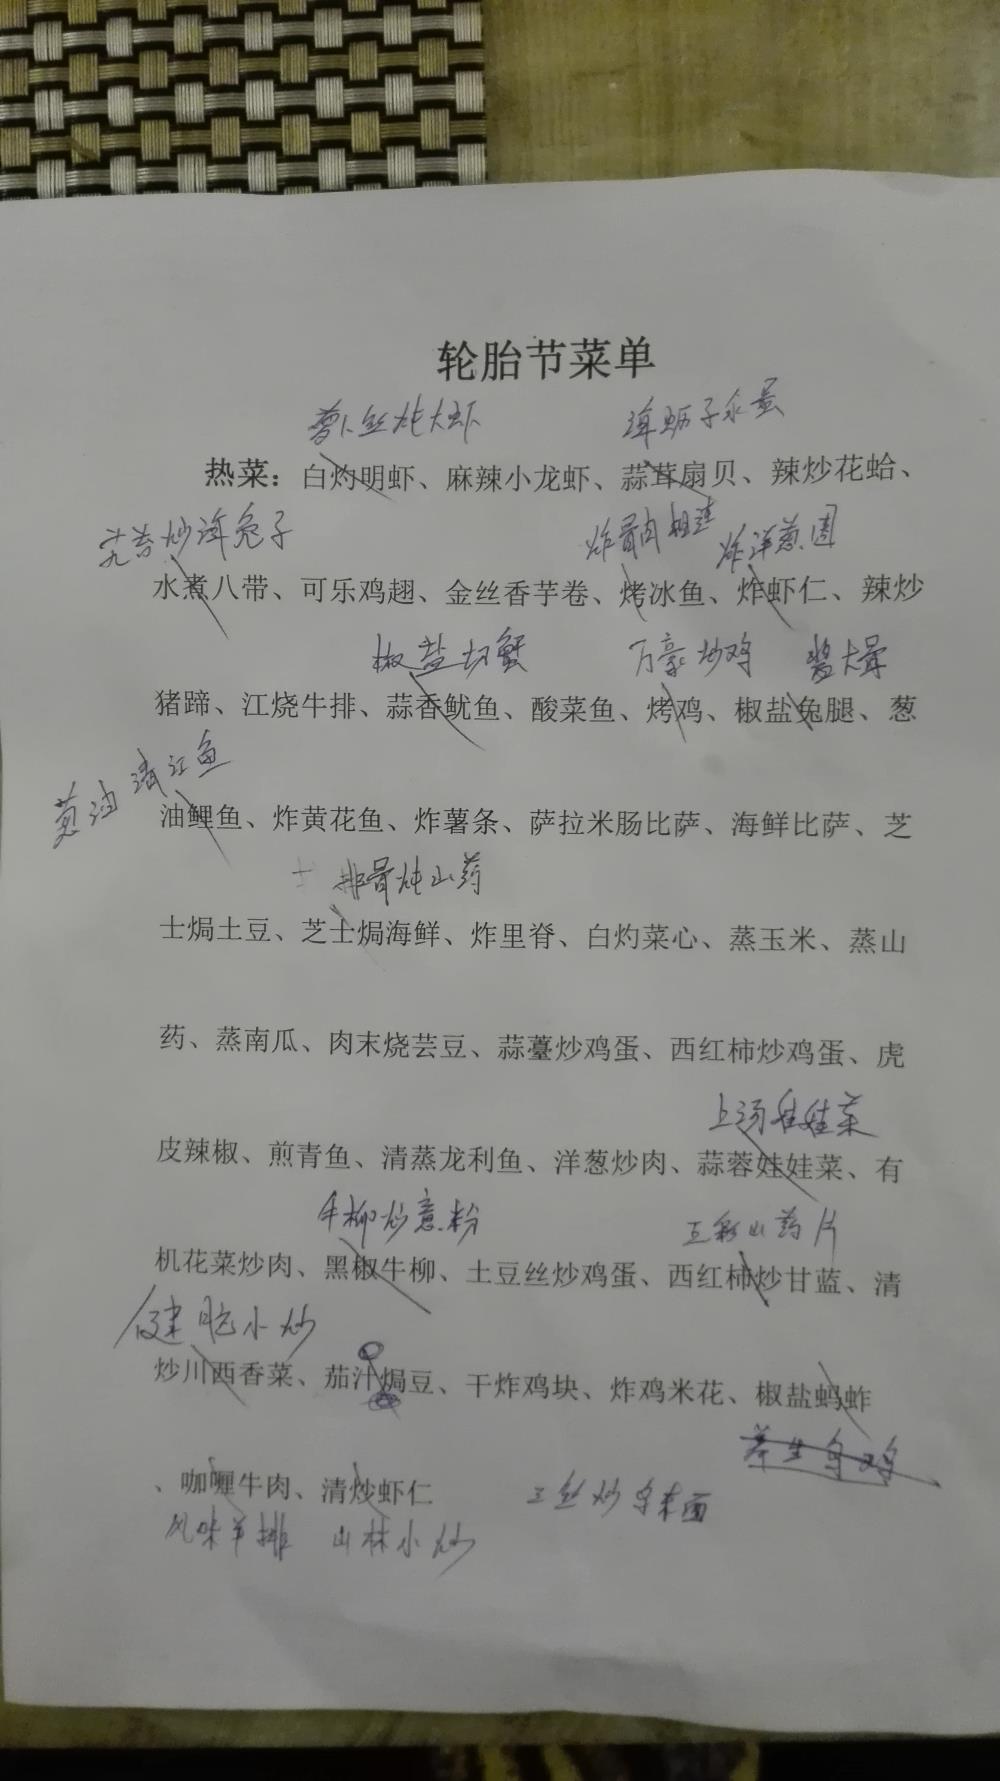 轮胎节菜单
萝卜丝炖大虾
热菜：白灼明虾、麻辣小龙虾、蒜茸扇贝、辣炒花蛤、
炸洋葱圈
水煮八带、可乐鸡翅、金丝香芋卷、烤冰鱼、炸虾仁、辣炒
椒盐切蟹 万豪炒鸡 酱大骨
猪蹄、江烧牛排、蒜香鱿鱼、酸菜鱼、烤鸡、椒盐兔腿、葱
葱油清江鱼
油鲤鱼、炸黄花鱼、炸薯条、萨拉米肠比萨、海鲜比萨、芝
排骨炖山药
士焗土豆、芝士焗海鲜、炸里脊、白灼菜心、蒸玉米、蒸山
药、蒸南瓜、肉末烧芸豆、蒜薹炒鸡蛋、西红柿炒鸡蛋、虎
上汤娃娃菜
皮辣椒、煎青鱼、清蒸龙利鱼、洋葱炒肉、蒜蓉娃娃菜、有
牛柳炒意粉 五彩山药片
机花菜炒肉、黑椒牛柳、土豆丝炒鸡蛋、西红柿炒甘蓝、清
健脑小炒
炒川西香菜、茄汁焗豆、干炸鸡块、炸鸡米花、椒盐蚂蚱
养生乌鸡
、咖喱牛肉、清炒虾仁 三丝炒乌冬面
风味羊排 山林小炒